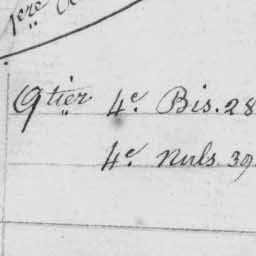 1ère
Qtier 4e. Bis. 28
4e. Nuls 39